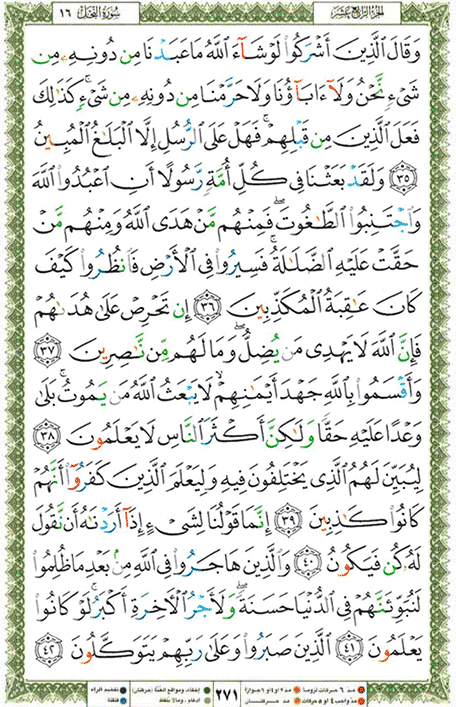 الجزء الرابع عشر
سورة النحل ١٦
وَقَالَ الَّذِينَ أَشْرَكُوا لَوْ شَاءَ اللَّهُ مَا عَبَدْنَا مِن دُونِهِ مِن
شَيْءٍ نَّحْنُ وَلَا ءَابَاؤُنَا وَلَا حَرَّمْنَا مِن دُونِهِ مِن شَيْءٍ كَذَٰلِكَ
فَعَلَ الَّذِينَ مِن قَبْلِهِمْ فَهَلْ عَلَى الرُّسُلِ إِلَّا الْبَلَٰغُ الْمُبِينُ
٣٥ وَلَقَدْ بَعَثْنَا فِي كُلِّ أُمَّةٍ رَّسُولًا أَنِ اعْبُدُوا اللَّهَ
وَاجْتَنِبُوا الطَّٰغُوتَ فَمِنْهُم مَّنْ هَدَى اللَّهُ وَمِنْهُم مَّنْ
حَقَّتْ عَلَيْهِ الضَّلَٰلَةُ فَسِيرُوا فِي الْأَرْضِ فَانظُرُوا كَيْفَ
كَانَ عَٰقِبَةُ الْمُكَذِّبِينَ ٣٦ إِن تَحْرِصْ عَلَىٰ هُدَىٰهُمْ
فَإِنَّ اللَّهَ لَا يَهْدِي مَن يُضِلُّ وَمَا لَهُم مِّن نَّٰصِرِينَ ٣٧
وَأَقْسَمُوا بِاللَّهِ جَهْدَ أَيْمَٰنِهِمْ لَا يَبْعَثُ اللَّهُ مَن يَمُوتُ بَلَىٰ
وَعْدًا عَلَيْهِ حَقًّا وَلَٰكِنَّ أَكْثَرَ النَّاسِ لَا يَعْلَمُونَ ٣٨
لِيُبَيِّنَ لَهُمُ الَّذِي يَخْتَلِفُونَ فِيهِ وَلِيَعْلَمَ الَّذِينَ كَفَرُوا أَنَّهُمْ
كَانُوا كَٰذِبِينَ ٣٩ إِنَّمَا قَوْلُنَا لِشَيْءٍ إِذَا أَرَدْنَٰهُ أَن نَّقُولَ
لَهُ كُن فَيَكُونُ ٤٠ وَالَّذِينَ هَاجَرُوا فِي اللَّهِ مِن بَعْدِ مَا ظُلِمُوا
لَنُبَوِّئَنَّهُمْ فِي الدُّنْيَا حَسَنَةً وَلَأَجْرُ الْآخِرَةِ أَكْبَرُ لَوْ كَانُوا
يَعْلَمُونَ ٤١ الَّذِينَ صَبَرُوا وَعَلَىٰ رَبِّهِمْ يَتَوَكَّلُونَ ٤٢
مد ٦ حركات لزوماً مد ٢ او ٤ او ٦ جوازاً
مد واجب ٤ او ٥ حركات مد حركتان
٢٧١
إخفاء، ومواقع الغنة (حركتان) تفخيم الراء
ادغام، ومالا يلفظ قلقلة